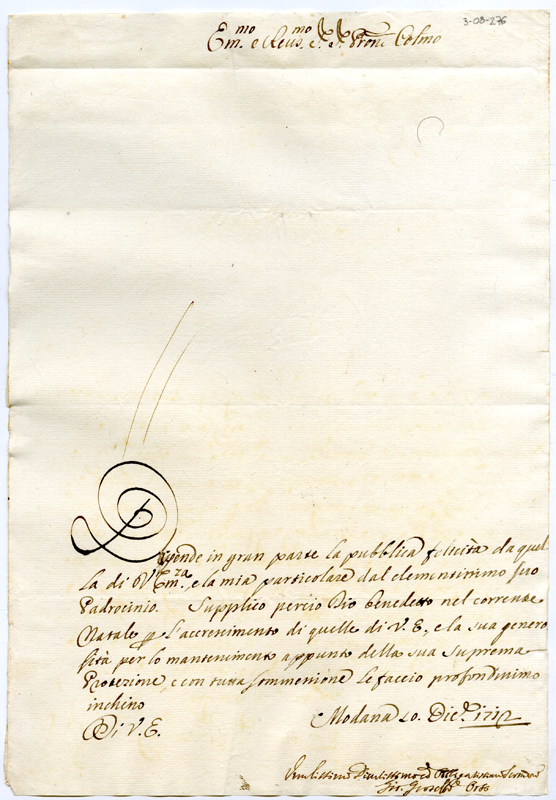 3-08-276
Em.mo e Reu.mo S.r S.r Pron Colmo
Dipende in gran parte la pubblica felicità da quel-
la di V. Em.za, e la mia particolare dal clementissimo suo
Padrocinio. Supplico perciò Dio benedetto nel corrente
Natale p l'accrescimento di quelle di V. E., e la sua genero
sità per lo mantenimento appunto della sua Suprema
Protezione, e con tutta sommissione le faccio profondissimo
inchino
Di V. E. Modana 20. Dic.e 1712
Umilissimo Divotissimo ed Obbligatissimo Servidore